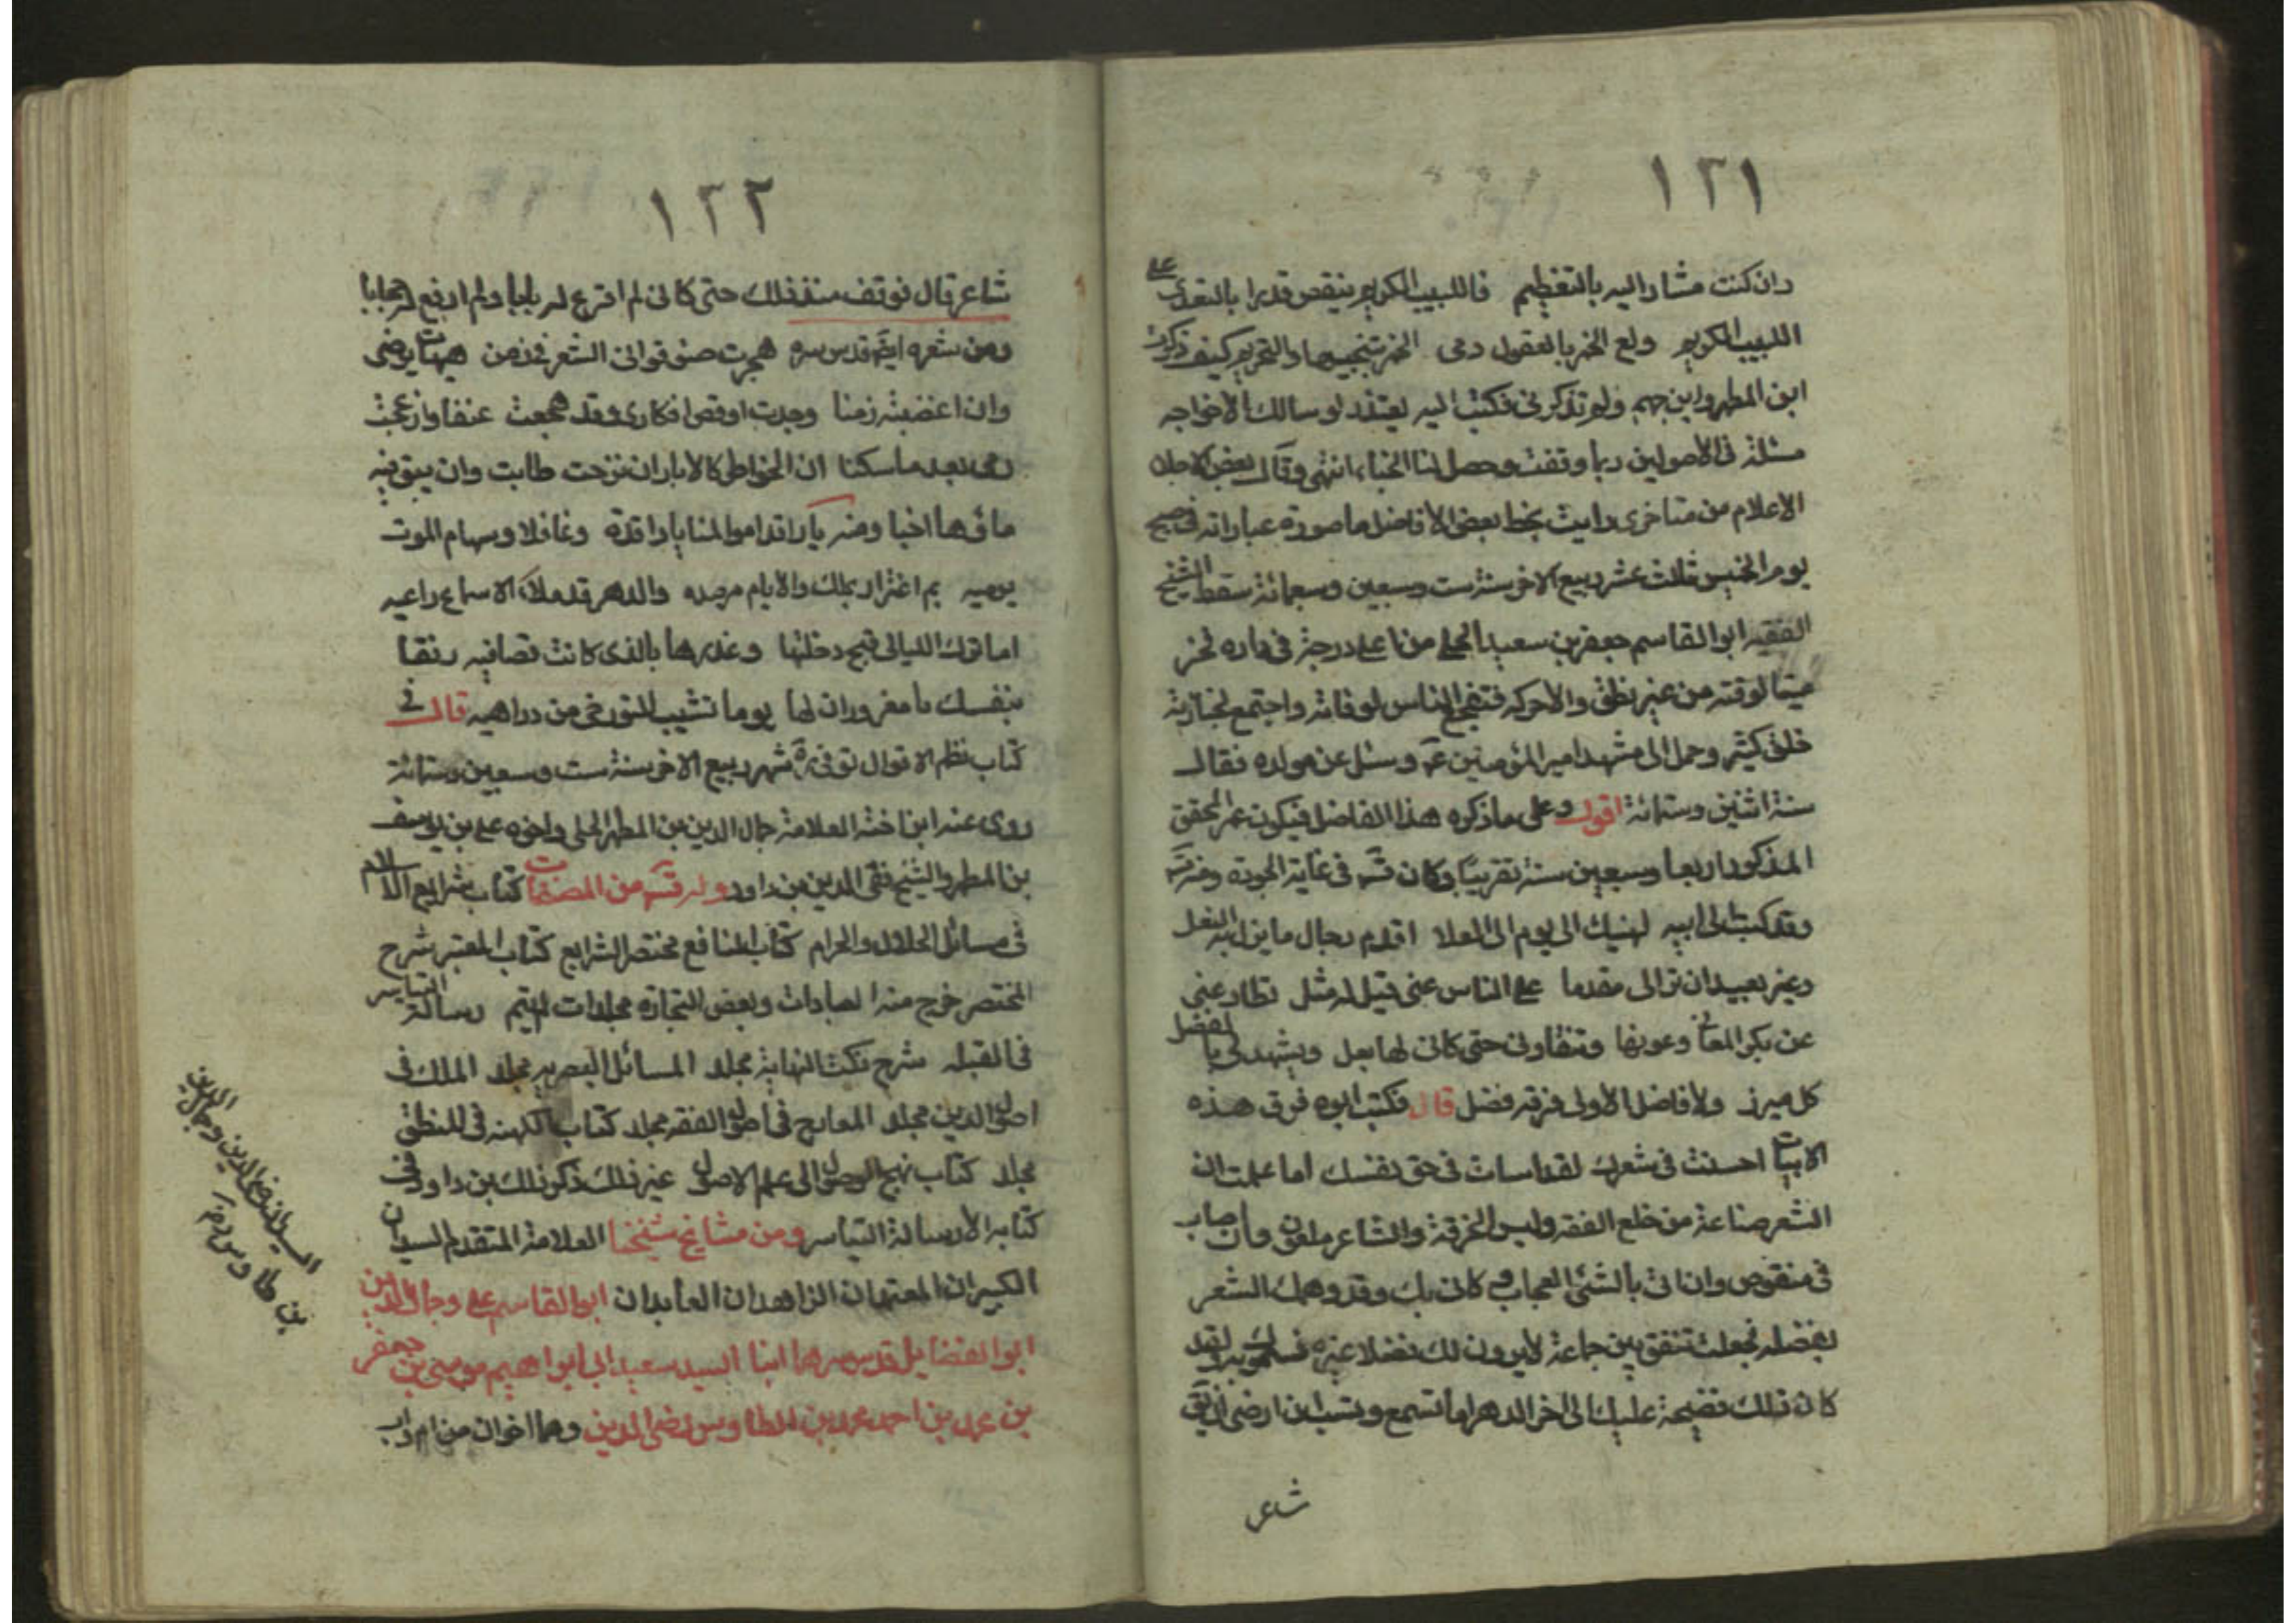 ١٢١
وان كنت مشارا اليه بالتعظيم فاللبيب الكريم ينقص قدرا بالتعدي على
اللبيب الكريم ولع الخمر بالعقول رمى الخمر بتنجيسها والتحريم كيف ذكرت
ابن المطهر وابن جهم ولم تذكرني فكتب اليه يعتذر لو سالك الاخواجه
مسئلة في الاصولين ربما وقفت وحصل لنا الحياء انتهى وقال بعض الاجلاء
الاعلام من متاخري رايت بخط بعض الافاضل ما صورة عباراته في صبح
يوم الخميس ثالث عشر ربيع الاخر سنة ست وسبعين وسبعمائة سقط الشيخ
الفقيه ابو القاسم جعفر بن سعيد الحلي من اعلى درجة في داره فخر
ميتا لوقته من غير نطق ولا حركه فتفجع الناس لوفاته واجتمع لجنازته
خلق كثير وحمل الى مشهد امير المؤمنين ع وسئل عن مولده فقال
سنة اثنتين وستمائة اقول وعلى ما ذكره هذا الفاضل فيكون عمر المحقق
المذكور اربعا وسبعين سنة تقريبا وكان قس في غاية الجودة
وقد كتب الى ابيه ليهنك اني كل يوم الى العلا اقدم رجال ما يزل بها النعل
وغير بعيد ان تراني مقدما على الناس حتى قيل له مثل تطاوعني
عن بكر المعاني وعونها وتنقاد لي حتى كاني لها بعل ويشهد لي بالفضل
كل مبرز ولا فاضل الا ولي فوقه فضل قال فكتب ابوه فوق هذه
الابيات احسنت في شعرك لقد اسات في حق نفسك اما علمت ان
الشعر صناعة من خلع الفقه ولبس الخرقة والشاعر ملعون وان اصاب
في منقوص وان اتى بالشئ العجاب وكاني بك وقد وهمك الشعر
بفضله فجعلت تنفق بين جماعة لا يرون لك فضلا غيره فسموك به ولقد
كان ذلك فضيحة عليك الى اخر الدهر اما تسمع ولست ارضى ان يق
شاعر
١٢٢
شاعر قال فوقف منذ ذلك حتى كاني لم اقرع له بابا ولم ارفع له حجابا
ومن شعره ايضا قدس سره هجرت صنوع قوافي الشعر في زمن هيهات يرضى
وان اغضبته زمنا وجدت اوقض افكاري وقد هجعت عنفا وازعجت
عزمى بعد ما سكنا ان الخواطر كالابار ان نزحت طابت وان يبق فيه
ماؤها اجنا ومنه يا راقدا موالمنايا راقدة وغافلا وسهام الموت
يرميه بم اغترارك والايام مرصده والدهر قد ملأ الاسماع داعيه
اما ترتك الليالي قبح دخلتها وغدرها بالذي كانت تصافيه رفقا
بنفسك يا مغرور ان لها يوما تشيب النواصي من دواهيه قال في
كتاب نظام الاقوال توفي ره شهر ربيع الاخر سنة ست وسبعين وستمائة
روى عنه ابن اخته العلامة جمال الدين بن المطهر الحلي واخوه علي بن يوسف
بن المطهر والشيخ تقي الدين بن داود وله قس من المصنفات كتاب شرايع الاسلام
في مسائل الحلال والحرام كتاب النافع مختصر الشرايع كتاب المعتبر شرح
المختصر خرج منه العبادات وبعض التجارة مجلدات لم يتم رسالة التياسر
في القبله شرح نكت النهاية مجلد المسائل البصريه مجلد الملك في
اصول الدين مجلد المعارج في اصول الفقه مجلد كتاب الكهنه في المنطق
مجلد كتاب نهج الوصول الى علم الاصول غير ذلك ذكر ذلك بن داود في
كتابه الا رسالة التياسر ومن مشايخ شيخنا العلامة المتقدم السيدان
الكبيران المعتمدان الزاهدان العابدان ابو القاسم علي وجمال الدين
ابو الفضايل قدس سرهما ابنا السيد سعيد ابي ابراهيم موسى بن جعفر
بن محمد بن احمد بن محمد بن الطاوس رضي الدين وهما اخوان من ام واب
السيد رضي الدين وجمال الدين
بن طاوس